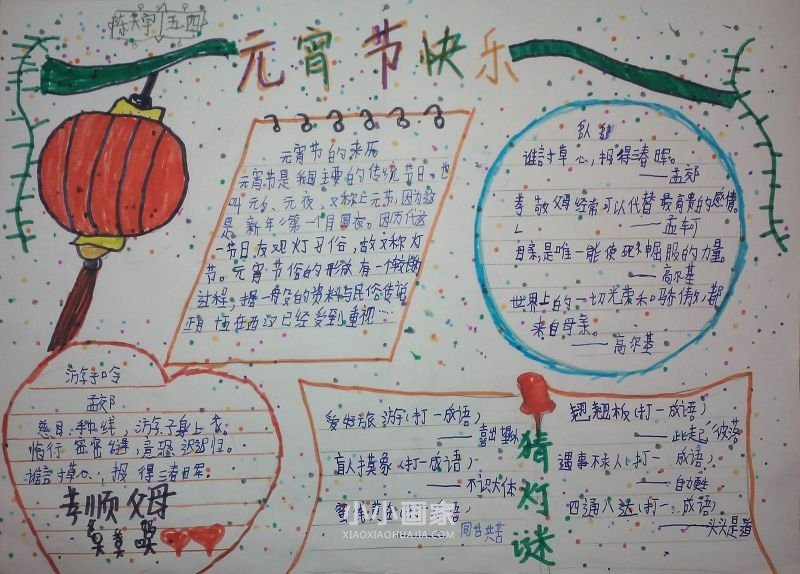 陈天宇 五四
元宵节快乐
元宵节的来历
元宵节是我国主要的传统节日，也
叫元夕、元夜，又称上元节，因为这
是新年第一个月圆夜。因历代这
一节日有观灯习俗，故又称灯
节。元宵节俗的形成有一个较长的
过程，据一般的资料与民俗传说
正月十五在西汉已经受到重视……
谁言寸草心，报得三春晖。
——孟郊
孝敬父母经常可以代替最高贵的感情。
——孟轲
母亲，是唯一能使死神屈服的力量。
——高尔基
世界上的一切光荣和骄傲，都
来自母亲。
——高尔基
游子吟
孟郊
慈母手中线，游子身上衣。
临行密密缝，意恐迟迟归。
谁言寸草心，报得三春晖。
孝顺父母
猜灯谜
爱好旅游（打一成语）
——喜出望外
盲人摸象（打一成语）
——不识大体
同甘共苦
翘翘板（打一成语）
——此起彼落
遇事不求人（打一成语）
——自力更生
四通八达（打一成语）
——头头是道
小小画家
XIAOXIAOHUAJIA.COM